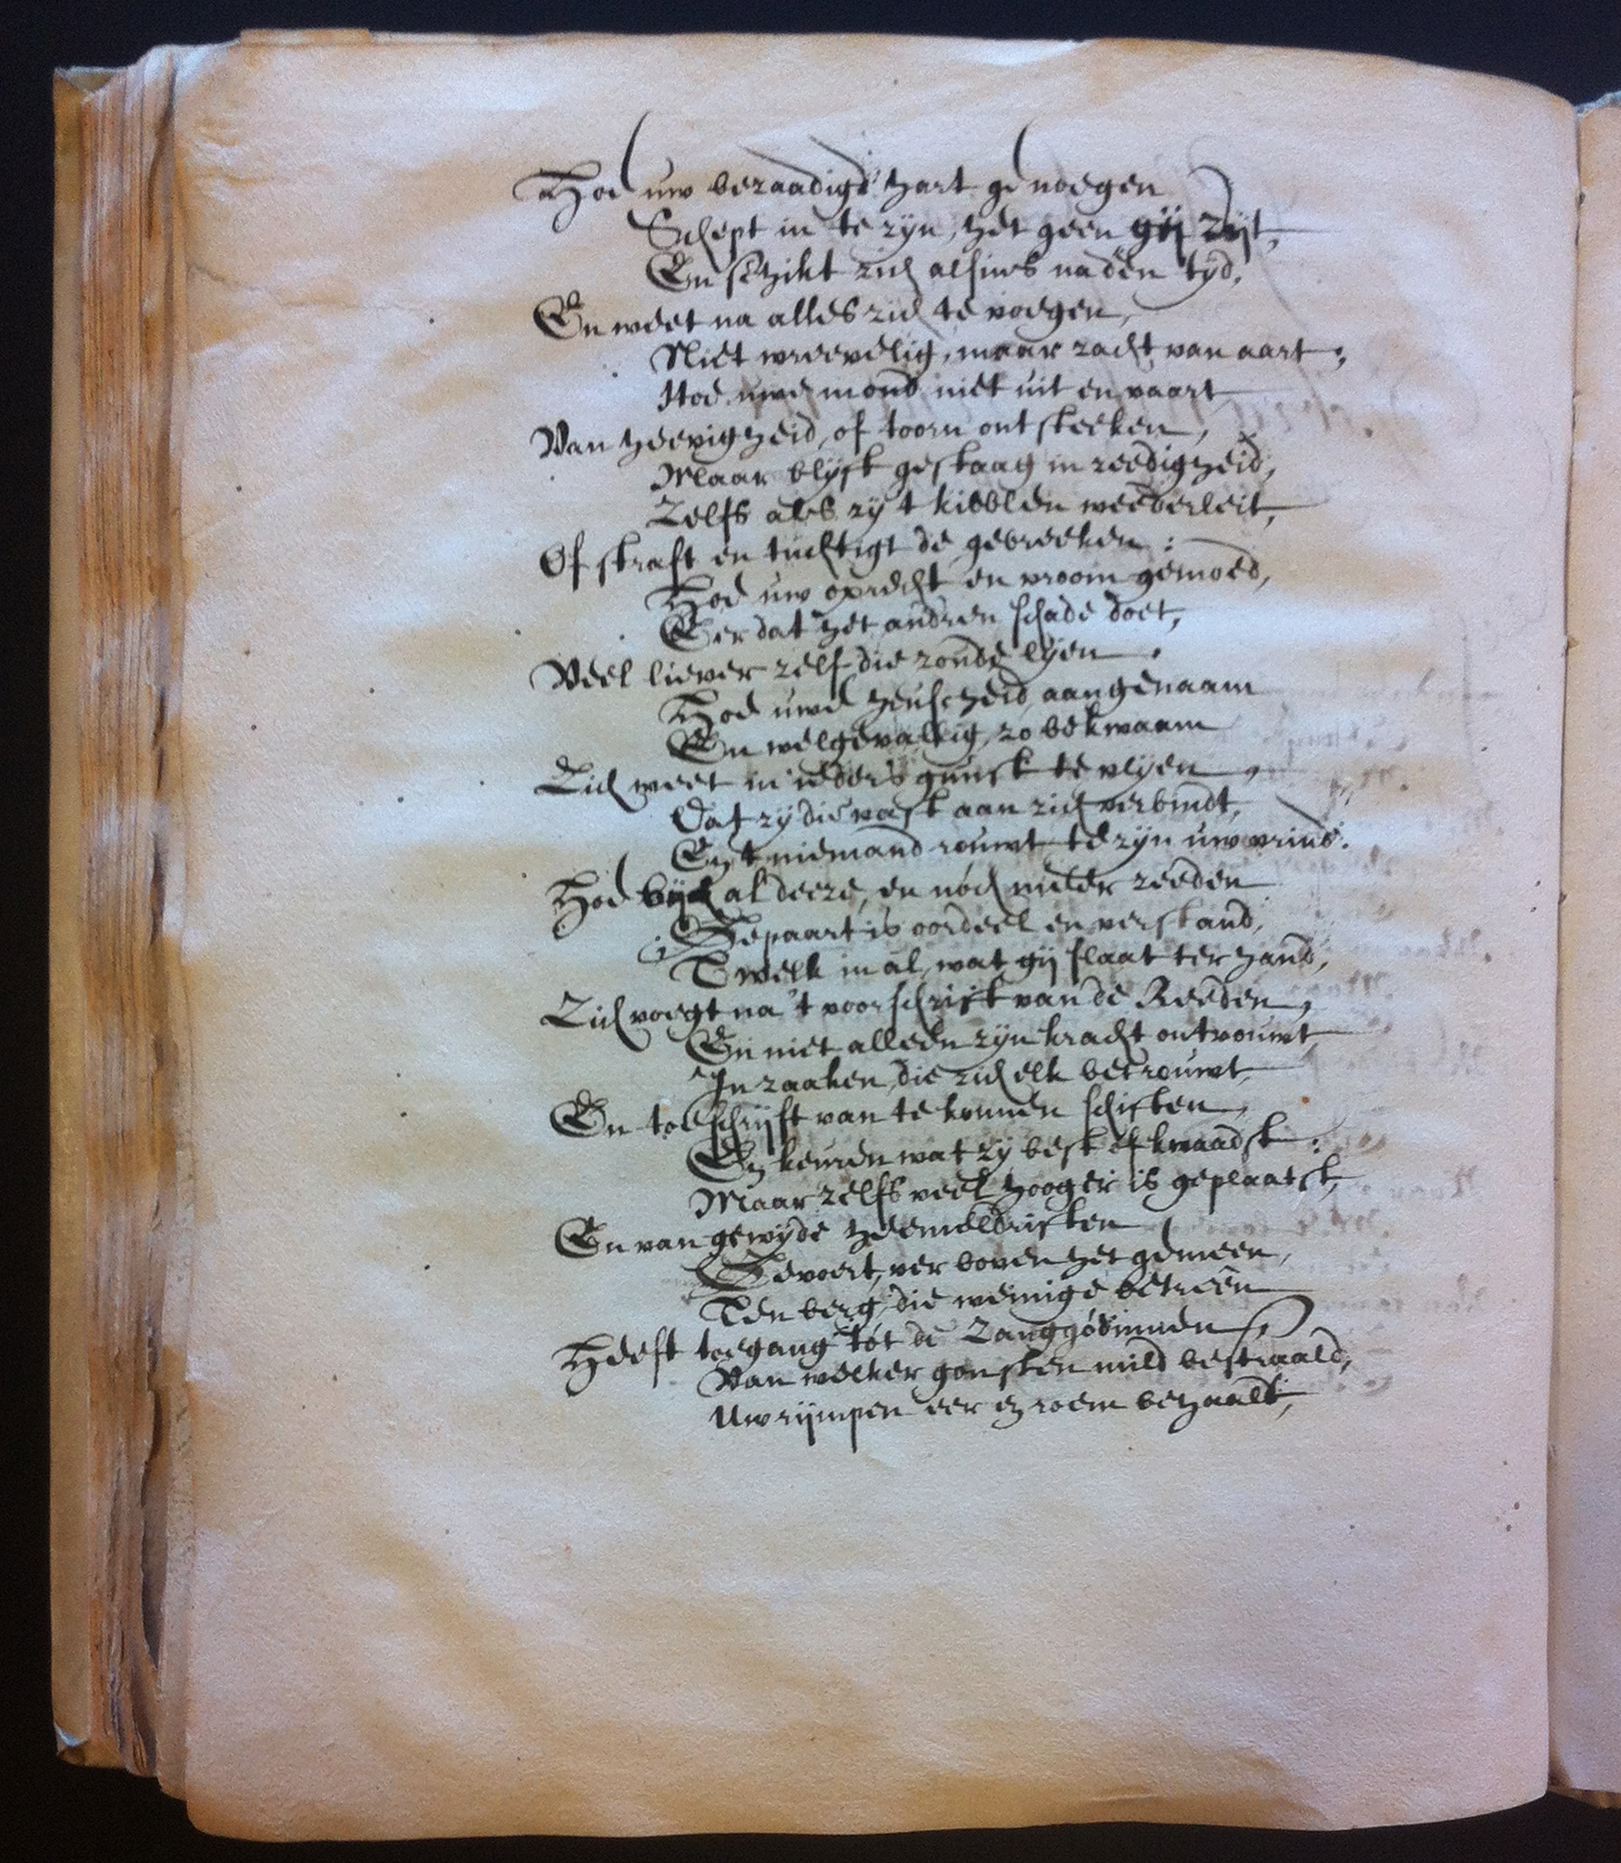 Hoe uw beraadigt hart genoegen
Schept in te zyn, het geen gij zijt,
En schikt zich alsins na den tyd,
En weet na alles zich te voegen,
Niet wreevelig, maar zacht van aart;
Hoe uwe mond niet uit en vaart
Van heevigheid, of toorn ontsteeken,
Maar blyft gestaag in reedigheid,
Zelfs als zy 't kibblen weederleit,
Of straft en tuchtigt de gebreeken:
Hoe uw oprecht en vroom gemoed,
Eer dat het andren schade doet,
Veel liever zelf die zonde lyen.
Hoe uwe heusheid aangenaam
En welgevallig, zo bekwaam
Zich weet in ieders gunst te vlyen,
Dat zy die vast aan zich verbindt,
En 't niemand rouwt te zyn uw vrind.
Hoe bij al deeze, en noch meer reeden
Gepaart is oordeel en verstand,
'Twelk in al, wat gij slaat ter hand,
Zich voegt na 't voorschrift van de Reeden,
En niet alleen zyn kracht ontvouwt
In zaaken, die zich elk betrouwt,
En toeschrijft van te konnen schiften,
En keuren wat zy best of kwaadst:
Maar zelfs veel hooger is geplaatst,
En van gewyde heemeldriften
Gevoert, ver boven het gemeen,
Ten berg, die weinige betreên
Heeft toegang tót de Zanggódinnen,
Van welker gonsten mild bestraald,
Uw rijmpen eer en roem behaalt,